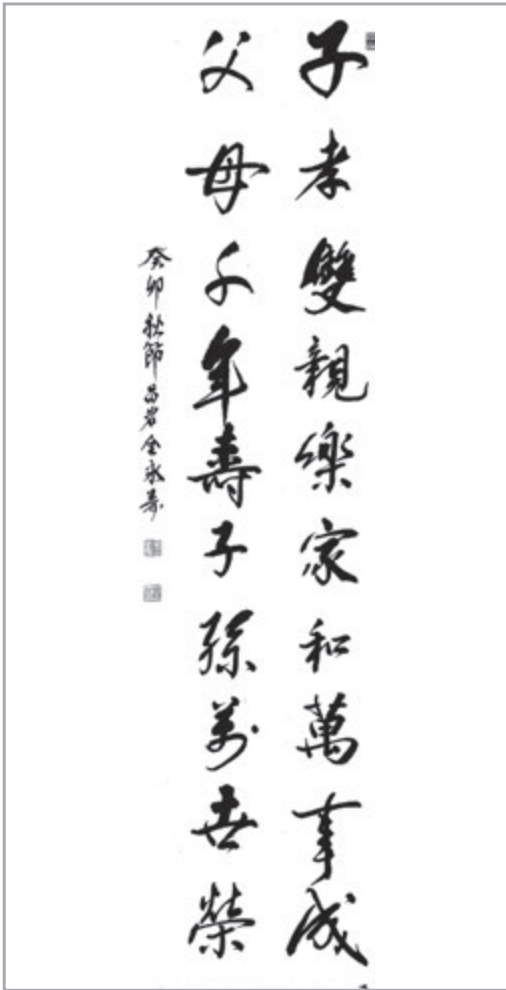 子孝雙親樂家和萬事成
父母千年壽子孫萬世榮
癸卯秋節 昌岩 金永壽